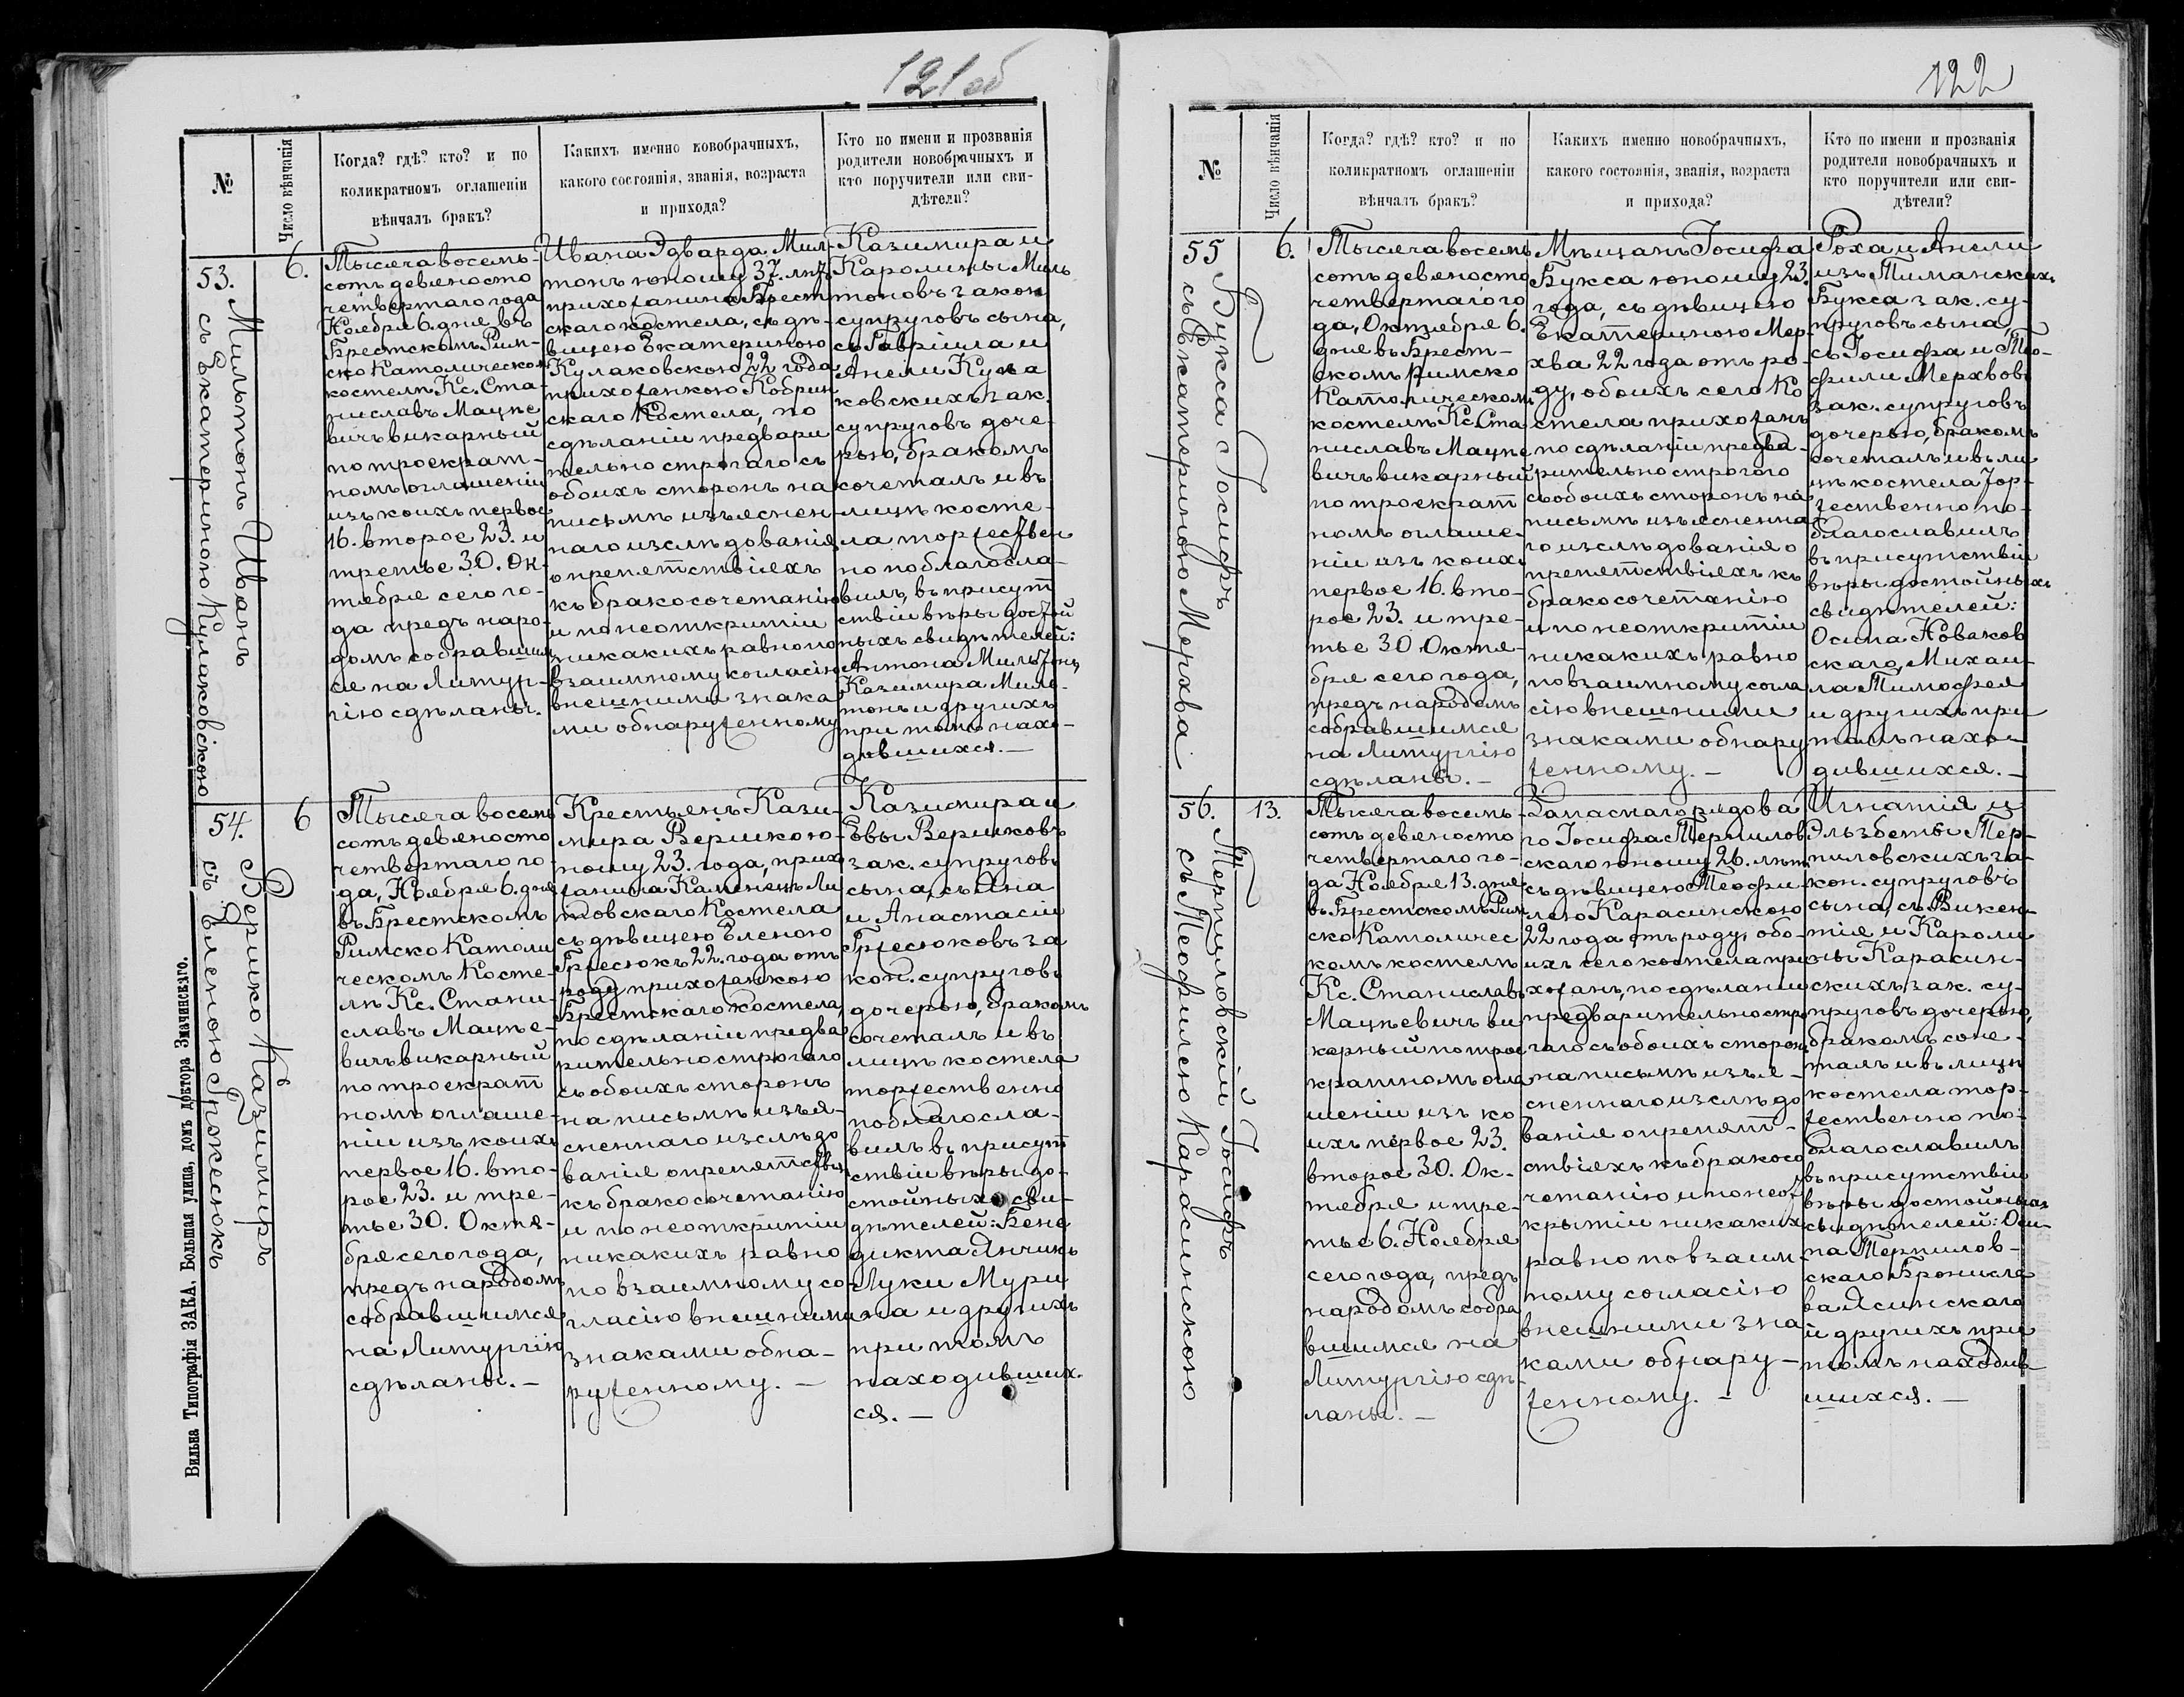 121 об
№
Число вѣнчанія
Когда? гдѣ? кто? и по
коликратномъ оглашеніи
вѣнчалъ бракъ?
Какихъ именно новобрачныхъ,
какого состоянія, званія, возраста
и прихода?
Кто по имени и прозванія
родители новобрачныхъ и
кто поручители или сви-
дѣтели?
53.
Мильтонъ Иванъ
съ Екатериною Кулаковскою
6.
Тысяча восемь-
сотъ девяносто
четвертаго года
Ноября 6. дня въ
Брестскомъ Рим-
ско Католическом
костелѣ Кс. Ста-
ниславъ Мацѣе
вичъ викарный
по троекрат-
номъ оглашеніи
изъ коихъ первое
16. второе 23. и
третье 30. Ок-
тября сего го-
да предъ наро-
домъ собравшим
ся на Литур-
гію сдѣланы.
Ивана Эдварда Миль-
тонъ юношу 37. лѣтъ
прихожанина Брест
скаго костела, съ дѣ-
вицею Екатериною
Кулаковскою 22 года
прихожанкою Кобрин
скаго Костела, по
сдѣланіи предвари
тельно строгаго съ
обоихъ сторонъ на
письмѣ изъяснен-
наго изслѣдованія
о препятствіяхъ
къ бракосочетанію
и по неоткрытіи
никакихъ равно по
взаимному согласію
внешними знака
ми обнаруженному
Казимира и
Каролины Миль
тоновъ закон
супруговъ сына,
съ Гавріила и
Анели Кула
ковскихъ зак.
супруговъ доче-
рью, бракомъ
сочеталъ и въ
лицѣ косте-
ла торжествен
но поблагосла-
вилъ, въ присут
ствіи вѣры достой
ныхъ свидѣтелей:
Антона Мильтонъ,
Казимира Миль-
тонъ и другихъ
при томъ нахо-
дившихся.—
54.
Веришко Казимиръ
съ Еленою Гржесюкъ
6
Тысяча восемь
сотъ девяносто
четвертаго го-
да, Ноября 6. дня
въ Брестскомъ
Римско Католи
ческомъ Косте-
лѣ Кс. Стани-
славъ Мацѣе-
вичъ викарный
по троекрат
номъ оглаше-
ніи изъ коихъ
первое 16. вто-
рое 23. и тре-
тье 30. Октя-
бря сего года,
предъ народомъ
собравшимся
на Литургію
сдѣланы.—
Крестьянъ Кази-
мира Веришко ю-
ношу 23. года, прих
жанина Каменецъ Ли
товскаго Костела
съ дѣвицею Еленою
Гржесюкъ 22. года отъ
роду прихожанкою
Брестскаго костела,
по сдѣланіи предва
рительно строгаго
съ обоихъ сторонъ
на письмѣ изъя-
сненнаго изслѣдо
ванія о препятствіях
къ бракосочетанію
и по неоткрытіи
никакихъ равно
по взаимному со-
гласію внешними
знаками обна-
руженному.—
Казимира и
Евы Веришковъ
зак. супруговъ
сына, съ Яна
и Анастасіи
Гржесюковъ за
кон. супруговъ
дочерью, бракомъ
сочеталъ и въ
лицѣ костела
торжественно
поблагосла-
вилъ въ присут
ствіи вѣры до-
стойныхъ сви-
дѣтелей: Бене
дикта Янчикъ
Луки Мури
на и другихъ
при томъ
находивших-
ся.—
Вильна Типографія ЗАКА, Большая улица, домъ доктора Змачинскаго.
122
№
Число вѣнчанія
Когда? гдѣ? кто? и по
коликратномъ оглашеніи
вѣнчалъ бракъ?
Какихъ именно новобрачныхъ,
какого состоянія, званія, возраста
и прихода?
Кто по имени и прозванія
родители новобрачныхъ и
кто поручители или сви-
дѣтели?
55
Букса Іосифъ
съ Екатериною Мерхва
6.
Тысяча восемь
сотъ девяносто
четвертаго го
да, Октября 6.
дня въ Брест-
скомъ Римско
Католическомъ
костелѣ Кс. Ста
ниславъ Мацѣе
вичъ викарный
по троекрат
номъ оглаше-
ніи изъ коихъ
первое 16. вто-
рое 23. и тре-
тье 30 Октя-
бря сего года,
предъ народомъ
собравшимся
на Литургію
сдѣланы.—
Мѣщанъ Іосифа
Букса юношу 23.
года, съ дѣвицею
Екатериною Мер-
хва 22 года отъ ро-
ду, обоихъ сего Ко
стела прихожанъ
по сдѣланіи предва-
рительно строгого
съ обоихъ сторонъ на
письмѣ изъясненна
го изслѣдованія о
препятствіяхъ къ
бракосочетанію
и по неоткрытіи
никакихъ равно
по взаимному согла
сію внешними
знаками обнару
женному.—
Роха и Анели
изъ Тиманскихъ
Букса зак. су-
пруговъ сына,
съ Іосифа и Тео-
фили Мерхвовъ
зак. супруговъ
дочерью, бракомъ
сочеталъ и въ ли
цѣ костела тор-
жественно по-
благославилъ
въ присутствіи
вѣры достойныхъ
свидѣтелей:
Осипа Новаков
скаго, Михаи-
ла Тимофея
и другихъ при
томъ нахо-
дившихся.—
56.
Терпиловскій Іосифъ
съ Теофилею Карасинскою
13.
Тысяча восемь-
сотъ девяносто
четвертаго го-
да Ноября 13. дня
въ Брестскомъ Рим
ско Католичес
комъ костелѣ
Кс. Станиславъ
Мацѣевичъ ви
карный по трое
кратномъ огла
шеніи изъ ко
ихъ первое 23.
второе 30. Ок-
тября и тре-
тье 6. Ноября
сего года, предъ
народомъ собра
вшимся на
Литургію сдѣ-
ланы.—
Запаснаго рядова
го Іосифа Терпилов
скаго юношу 26. лѣтъ
съ дѣвицею Теофи-
лею Карасинскою
22 года отъ роду, обо-
ихъ сего костела при
хожанъ, по сдѣланіи
предварительно стро
гаго съ обоихъ сторонъ
на письмѣ изъя-
сненнаго изслѣдо
ванія о препят-
ствіяхъ къ бракосо
четанію и по неот
крытіи никакихъ
равно по взаим
ному согласію
внешними зна
ками обнару-
женному.—
Игнатія и
Эльзбеты Тер-
пиловскихъ за-
кон. супруговъ
сына, съ Викен-
тія и Кароли
ны Карасин-
скихъ зак. су-
пруговъ дочерью,
бракомъ соче-
талъ и въ лицѣ
костела тор-
жественно по-
благославилъ
въ присутствіи
вѣры достойныхъ
свидѣтелей: Оси-
па Терпилов-
скаго Бронисла
ва Ясинскаго
и другихъ при
томъ находив
шихся.—